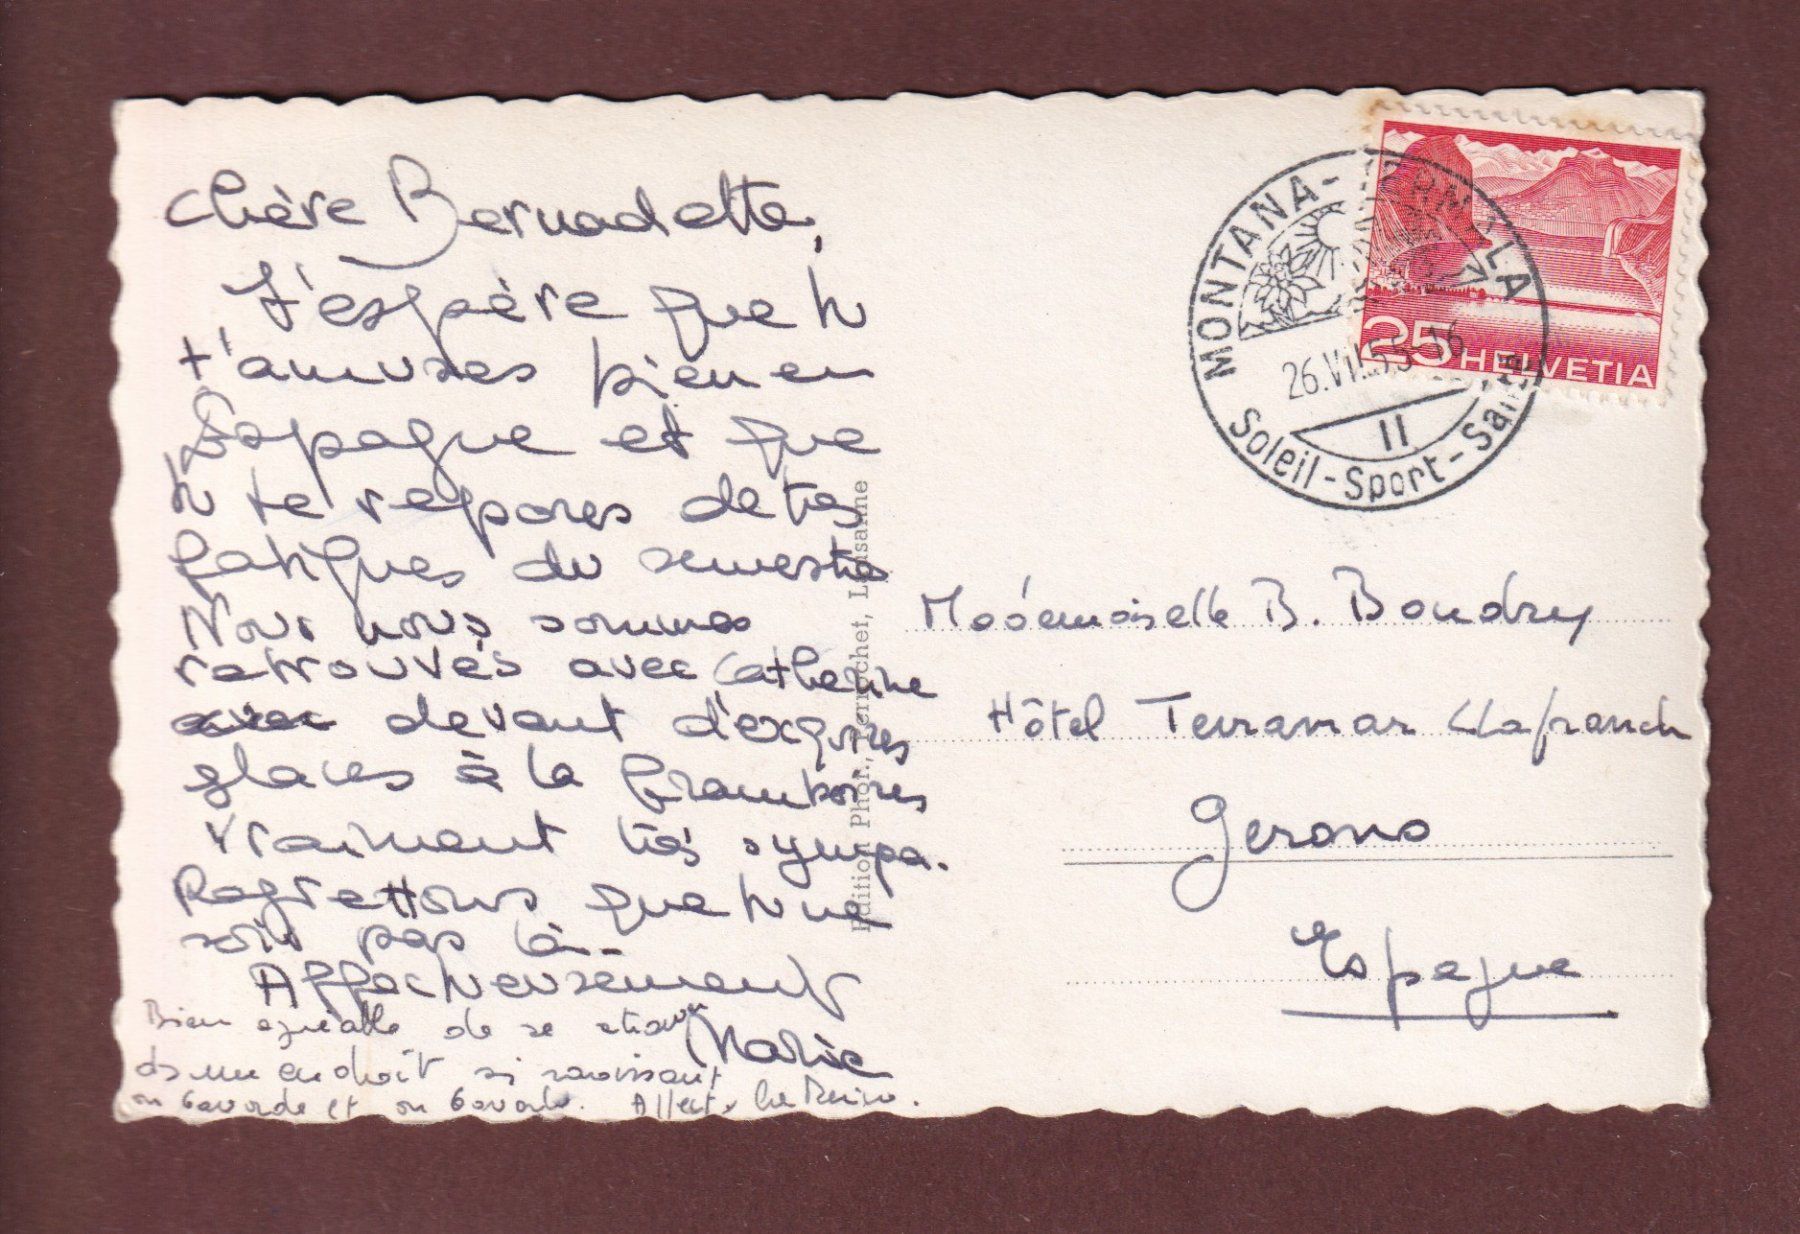 Chère Bernadette,
J'espère que tu
t'amuses bien en
Espagne et que
tu te reposes de tes
fatigues du semestre
Nous nous sommes
retrouvés avec Catherine
avec devant d'exquises
glaces à la framboises
vraiment très sympa.
Regrettons que tu ne
sois pas là.
Affectueusement
Marie
Bien agréable de se
ds un endroit si ravissant
on bavarde et on bavarde. Affect.
Edition Phot., Perrochet, Lausanne
MONTANA-VERMALA
26.VII.55-16
II
Soleil-Sport-Santé
25 HELVETIA
Mademoiselle B. Boudry
Hôtel Terramar Llafranch
Gerona
Espagne